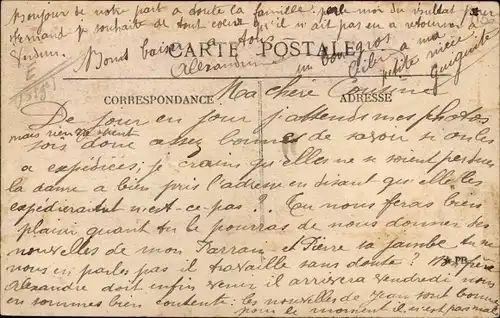 Bonjour de notre part a toute la famille; parle moi du resultat pour
Fernand je souhaite de tout coeur qu'il n'ait pas eu a retourner à
Verdun. Bons baisers a tous
Alexandrine
un bon gros
bibi a ma
petite nièce
Guiguitte
CARTE POSTALE
CORRESPONDANCE ADRESSE
Ma chère Cousine
De jour en jour j'attends mes photos
mais rien ne vient
sois donc assez bonne de savoir si on les
a expédiées; je crains qu'elles ne soient perdues
la dame a bien pris l'adresse en disant qu'elle les
expédieraient n'est-ce pas? Tu nous feras bien
plaisir quant tu le pourras de nous donner des
nouvelles de mon Parrain et Pierre sa jambe tu ne
nous en parles pas il travaille sans doute? Mon frère
Alexandre doit enfin venir il arrivera vendredi nous
en sommes bien contents: les nouvelles de Jean sont bonnes
pour le moment il n'est pas mal